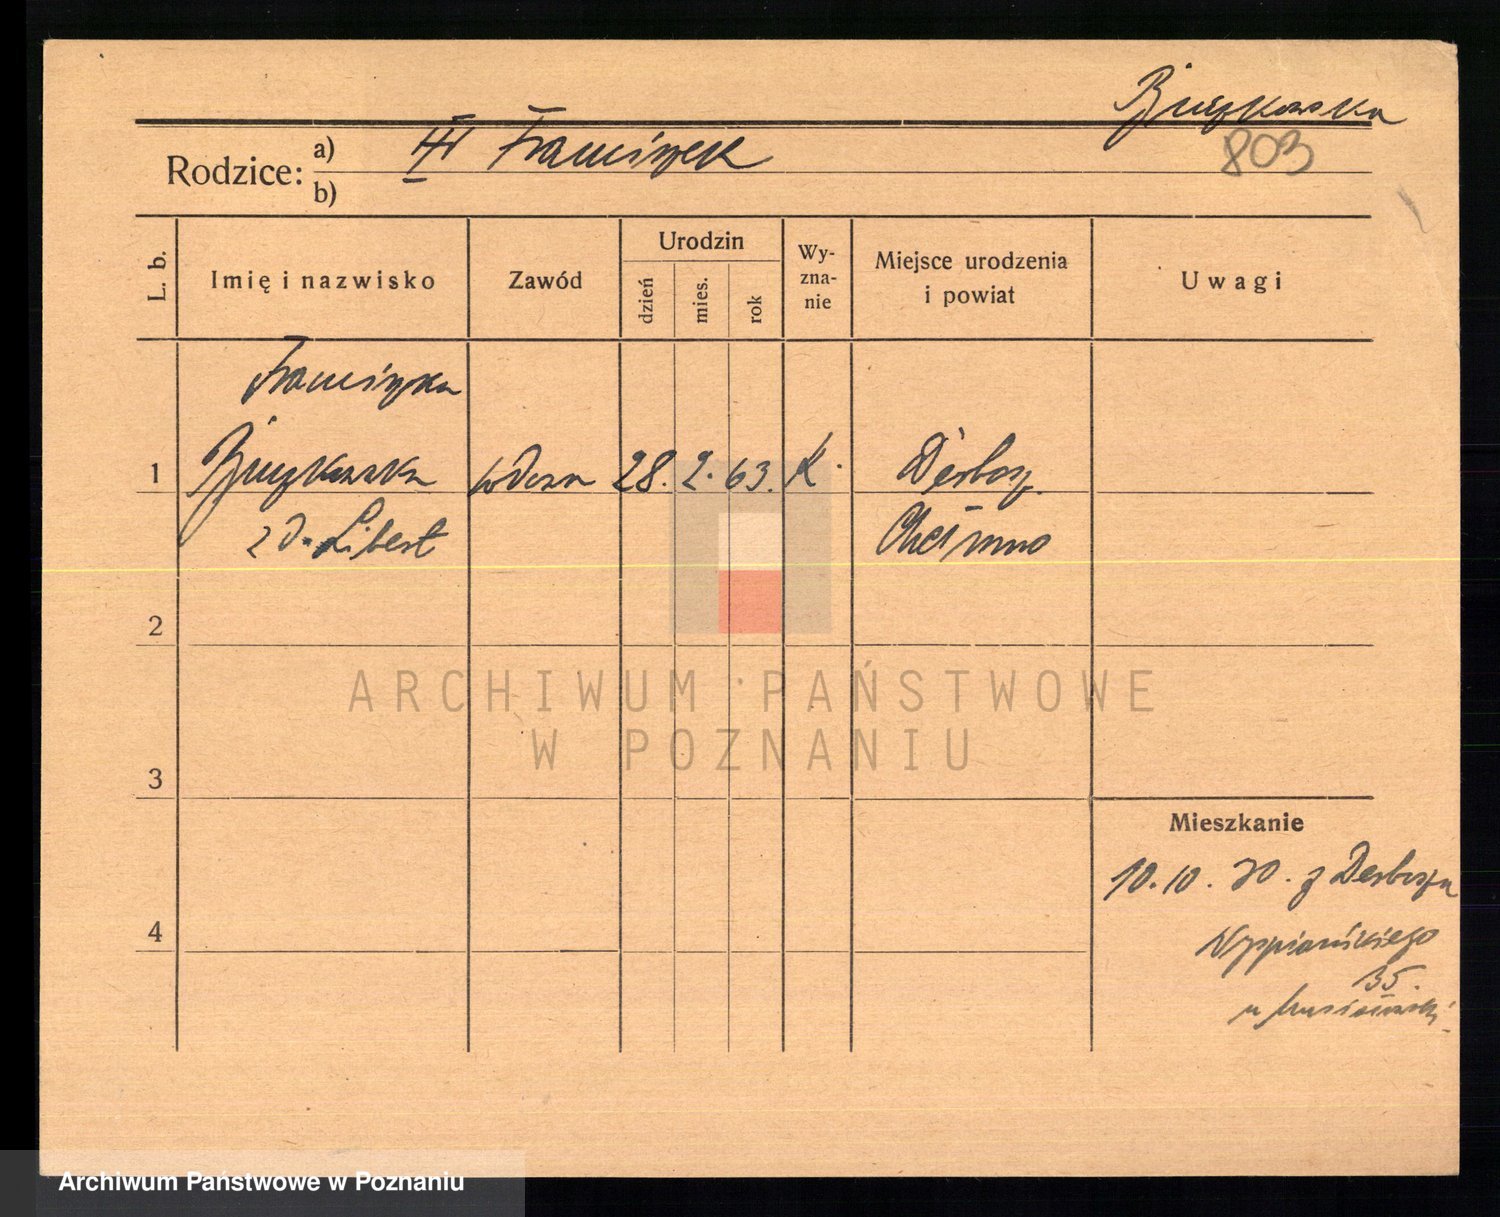 803
Rodzice: a) III Franciszek
b)
L. b.
Imię i nazwisko
Zawód
Urodzin
dzień
mies.
rok
Wy-
zna-
nie
Miejsce urodzenia
i powiat
Uwagi
Franciszka
1 wdowa 28. 2. 63. K.
z d. Libert
Chełmno
2
3
4
Mieszkanie
10. 10. 30. z
Wyspiańskiego
35.
u
ARCHIWUM PAŃSTWOWE
W POZNANIU
Archiwum Państwowe w Poznaniu